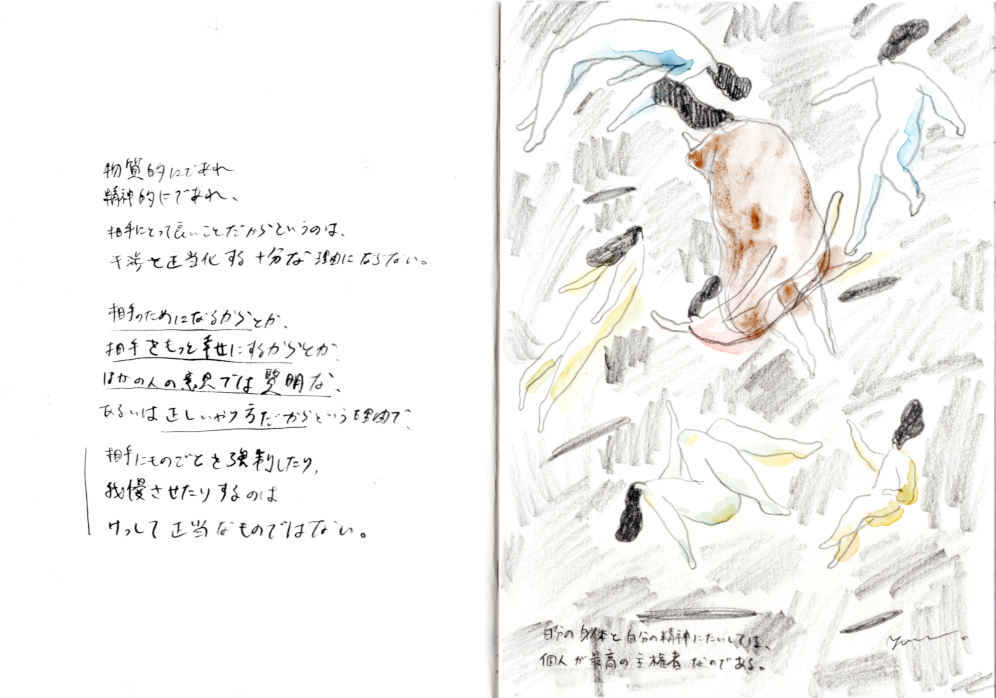 物質的にであれ
精神的にであれ、
相手にとって良いことだからというのは、
干渉を正当化する十分な理由にならない。
相手のためになるからとか、
相手をもっと幸せにするからとか、
ほかの人の意見では賢明な、
あるいは正しいやり方だからという理由で、
相手にものごとを強制したり、
我慢させたりするのは
けっして正当なものではない。
自分の身体と自分の精神にたいしては、
個人が最高の主権者なのである。